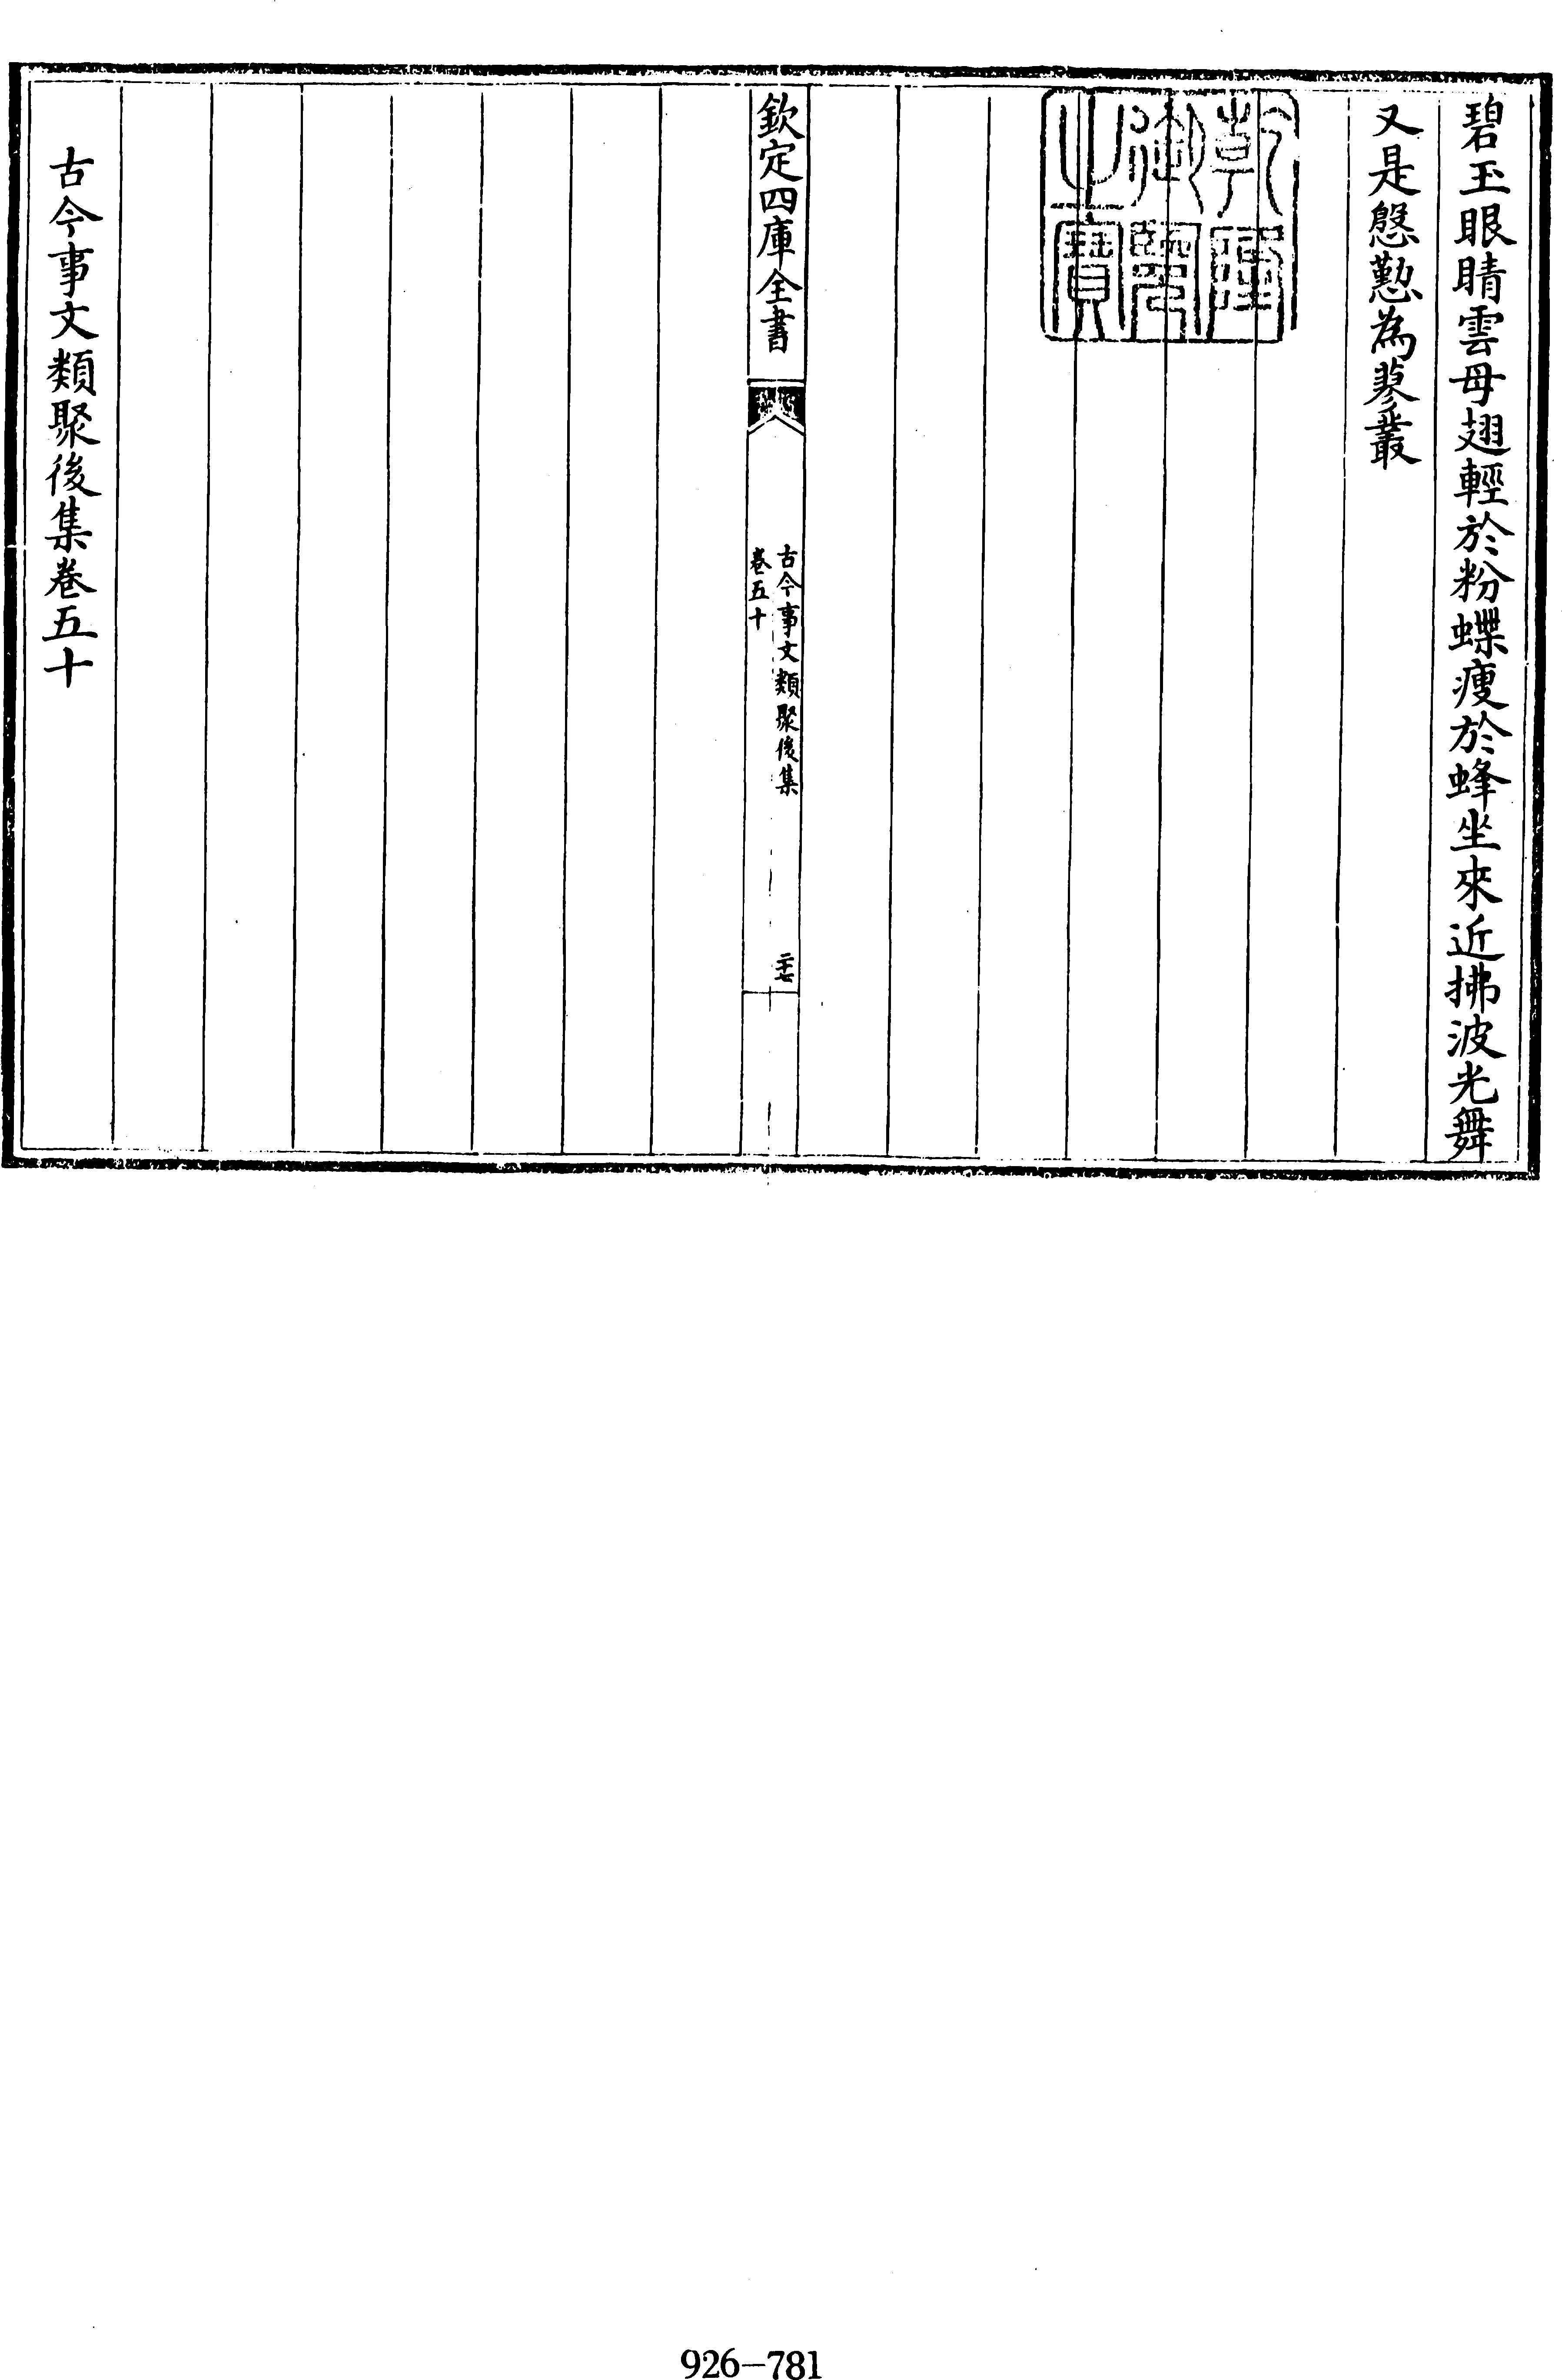 碧玉眼睛雲母翅輕於粉蝶瘦於蜂坐來近拂波光舞
又是慇懃為蓼叢
乾隆御覽之寶
欽定四庫全書
古今事文類聚後集
卷五十
二十七
古今事文類聚後集卷五十
926-781